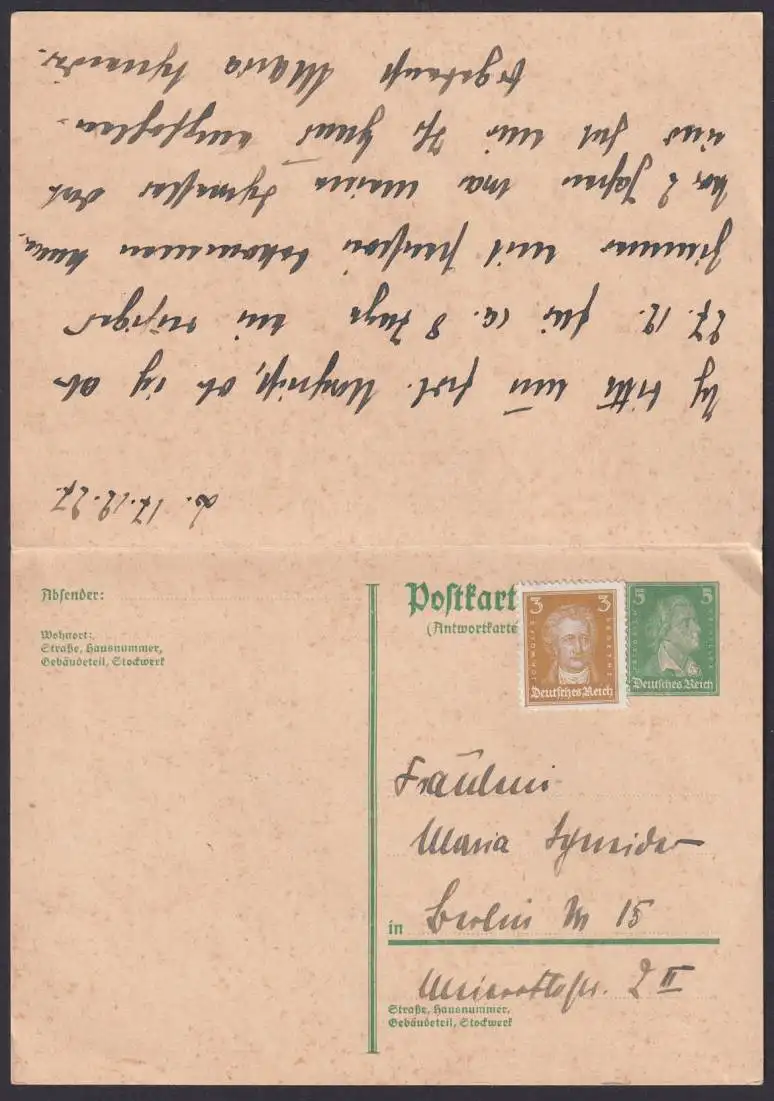 d. 17.12.27.
Ich bitte um frdl. Nachricht, ob ich ab
27.12. für ca. 8 Tage ein ruhiges
Zimmer mit Pension bekommen kann,
vor 2 Jahren war meine Schwester dort
und hat mir Ihr Haus empfohlen.
Ergebenst Maria Schneider.
Absender:
Wohnort:
Straße, Hausnummer,
Gebäudeteil, Stockwerk
Postkart
(Antwortkarte
3 3
JOH. WOLFG. GOETHE
Deutsches Reich
5 5
FRIEDRICH SCHILLER
Deutsches Reich
Fräulein
Maria Schneider
in Berlin W 15
2 II
Straße, Hausnummer,
Gebäudeteil, Stockwerk